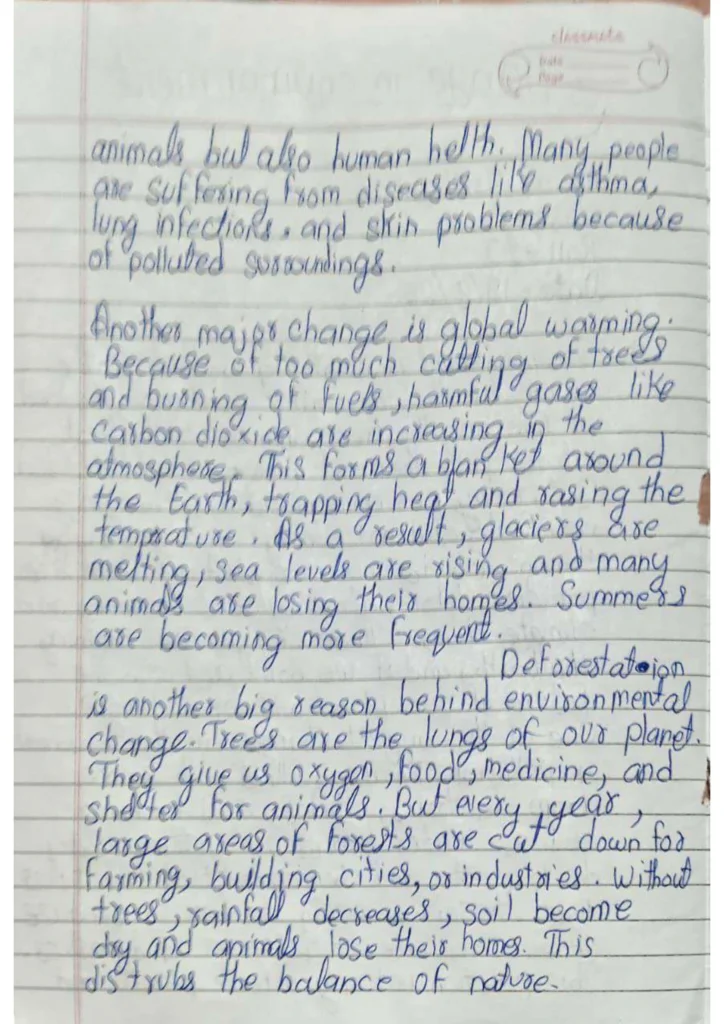 classmate
Date
Page
animals but also human helth. Many people
are suffering from diseases like asthma,
lung infections, and skin problems because
of polluted surroundings.
Another major change is global warming.
Because of too much cutting of trees
and burning of fuels, harmful gases like
carbon dioxide are increasing in the
atmosphere. This forms a blanket around
the Earth, trapping heat and rasing the
temprature. As a result, glaciers are
melting, sea levels are rising and many
animals are losing their homes. Summers
are becoming more frequent.
Deforestataion
is another big reason behind environmental
change. Trees are the lungs of our planet.
They give us oxygen, food, medicine, and
shelter for animals. But every year,
large areas of forests are cut down for
farming, building cities, or industries. Without
trees, rainfall decreases, soil become
dry and animals lose their homes. This
distrubs the balance of nature.